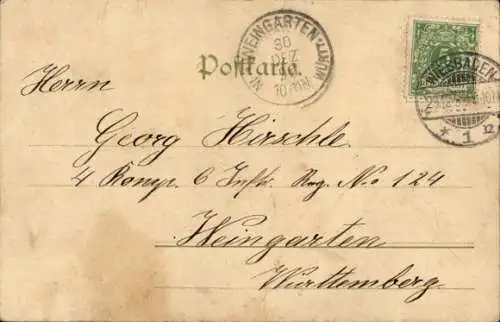 WEINGARTEN (WÜRTTM)
30
DEZ
10
Postkarte.
WIESBADEN
* 1
Herrn
Georg Hirschle
4 Komp. 6 Inftr. Reg. No. 124
Weingarten
Württemberg.